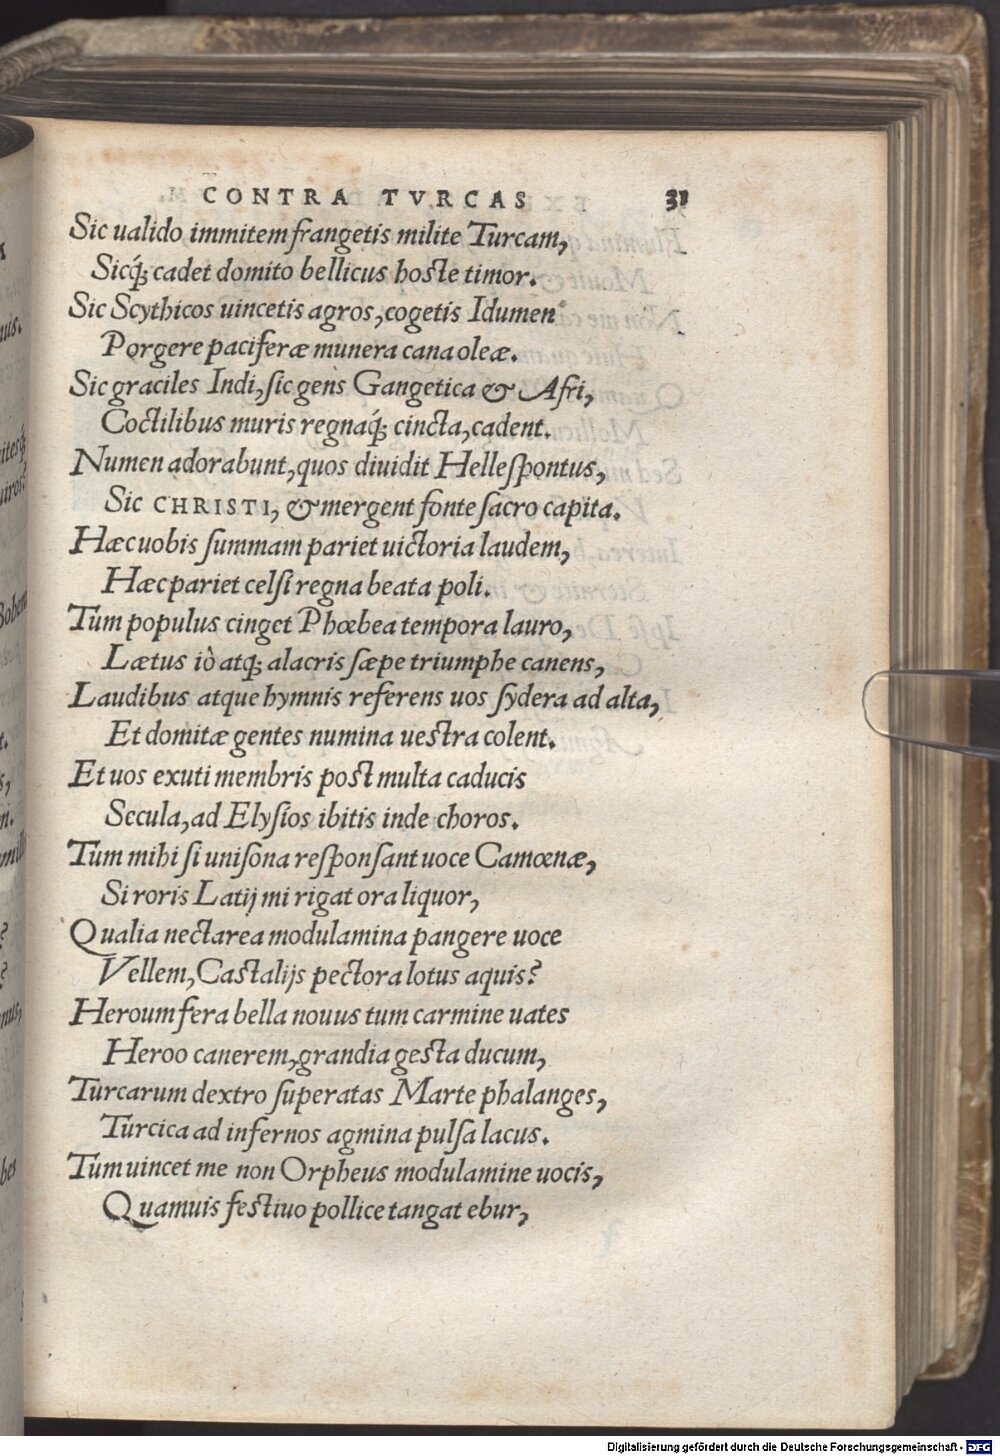 CONTRA TVRCAS 31
Sic ualido immitem frangetis milite Turcam,
Sicq́; cadet domito bellicus hoſte timor.
Sic Scythicos uincetis agros, cogetis Idumen
Porgere paciferæ munera cana oleæ.
Sic graciles Indi, ſic gens Gangetica & Afri,
Coctilibus muris regnaq́; cincta, cadent.
Numen adorabunt, quos diuidit Helleſpontus,
Sic CHRISTI, & mergent fonte ſacro capita.
Hæc uobis ſummam pariet uictoria laudem,
Hæc pariet celſi regna beata poli.
Tum populus cinget Phœbea tempora lauro,
Lætus iò atq; alacris ſæpe triumphe canens,
Laudibus atque hymnis referens uos ſydera ad alta,
Et domitæ gentes numina ueſtra colent.
Et uos exuti membris poſt multa caducis
Secula, ad Elyſios ibitis inde choros.
Tum mihi ſi uniſona reſponſant uoce Camœnæ,
Si roris Latij mi rigat ora liquor,
Qualia nectarea modulamina pangere uoce
Vellem, Caſtalijs pectora lotus aquis?
Heroum fera bella nouus tum carmine uates
Heroo canerem, grandia geſta ducum,
Turcarum dextro ſuperatas Marte phalanges,
Turcica ad infernos agmina pulſa lacus.
Tum uincet me non Orpheus modulamine uocis,
Quamuis feſtiuo pollice tangat ebur,
Digitalisierung gefördert durch die Deutsche Forschungsgemeinschaft - DFG